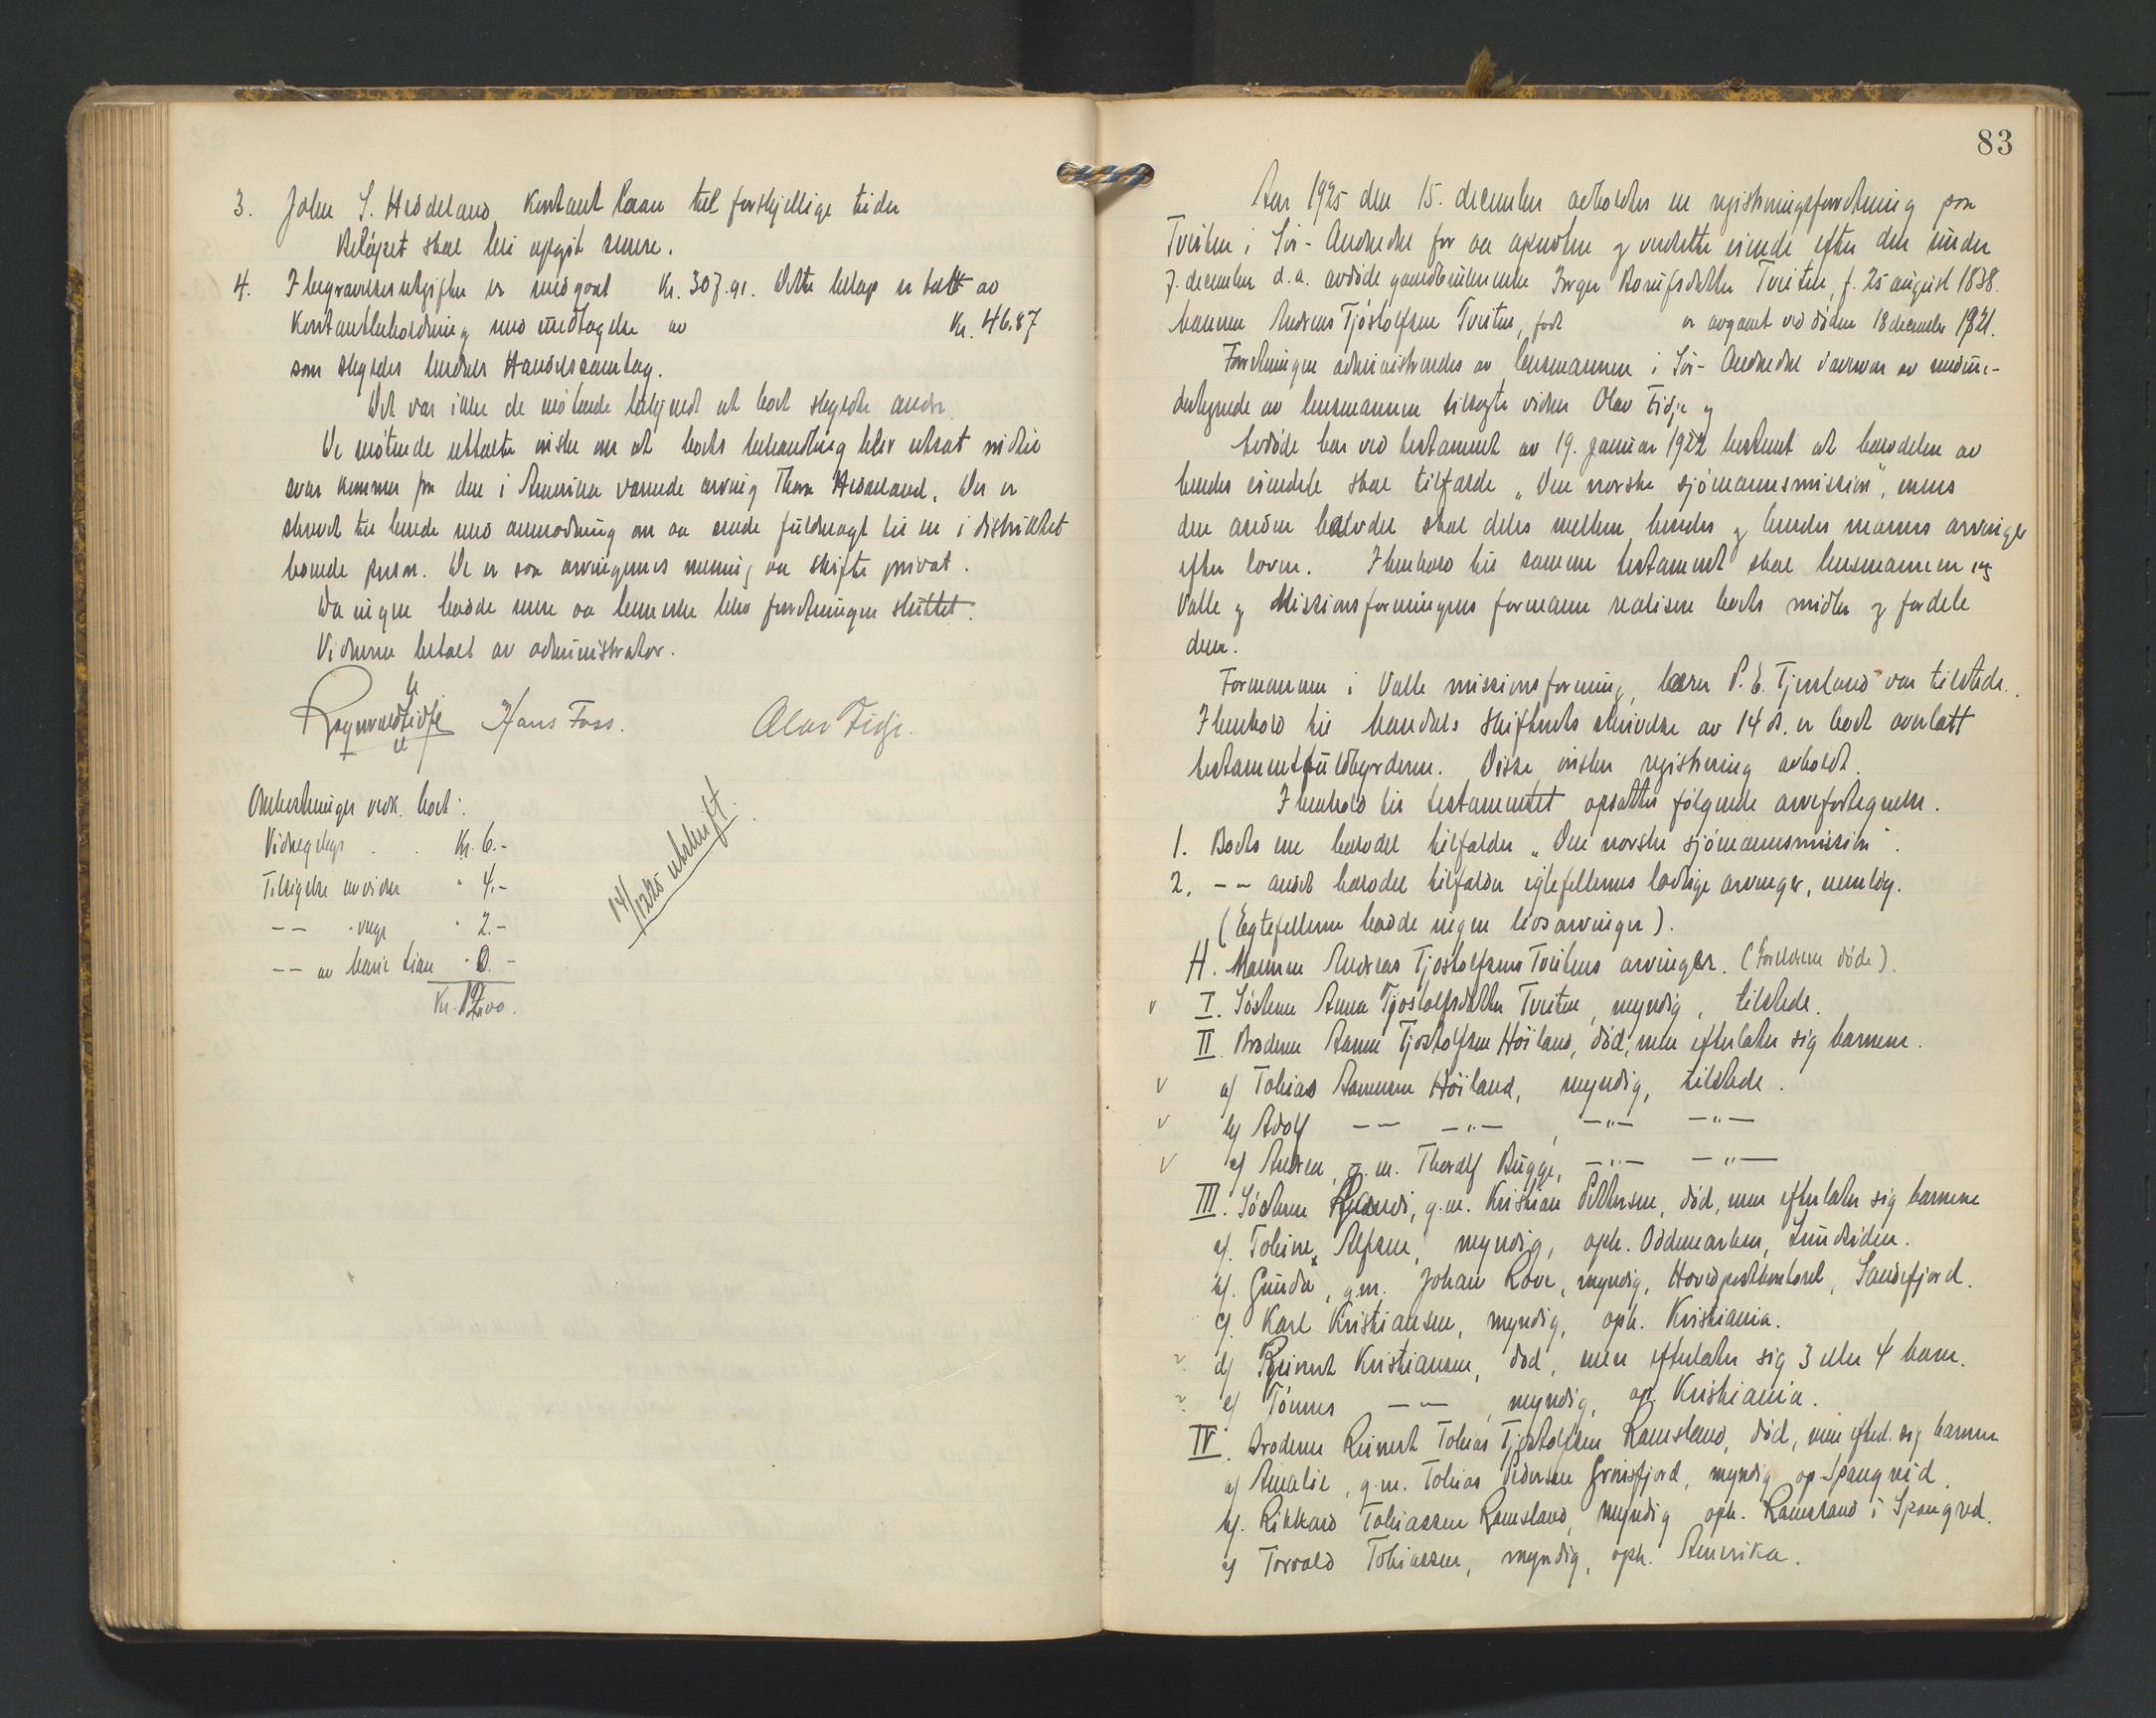 3. John S. Hesdeland, Kontant laan til forskjellige tider
Beløpet skal bli opgit senere.
4. I begravelsesutgifter er medgaat Kr. 307.91. Dette beløp er tatt av
Kontantbeholdning med undtagelse av Kr. 46.87
som skyldes Mandals Handelssamlag.
Det var ikke de møtende bekjendt at boet skyldte andre.
De møtende uttalte ønske om at boets behandling blir utsat indtil
svar kommer fra den i Amerika værende arving Thora Hesdeland. Der er
skrevet til hende med anmodning om aa sende fuldmagt til en i distriktet
boende person. Det er saa arvingernes mening aa skifte privat.
Da ingen hadde mere aa bemerke blev forretningen sluttet.
Vidnerne betalt av administrator.
Rognvald Tidje Hans Foss. Olav Tidje.
Omkostninger vedk. boet:
Vidnegebyr . . Kr. 6.-
Tilsigelse av vidner " 4.-
-- " verge " 2.-
-- av 0.-
Kr. 12.00.
14/12 25 utskrift.
83
Aar 1925 den 15. december avholdtes en registreringsforretning paa
Tveiten i Sør-Audnedal for aa opnotere og verdsette eiende efter den under
7. december d.a. avdøde gaardbrukerenke Inger Bornfsdatter Tveiten, f. 25 august 1838.
Mannen Andreas Tjøstolfsen Tveiten, født er avgaat ved døden 18 december 1921.
Forretningen administrertes av lensmannen i Sør-Audnedal i nærvær av medun-
dertegnede av lensmannen tilsagte vidner Olav Tidje og
Avdøde har ved testament av 19. januar 1922 bestemt at halvdelen av
hendes eiendele skal tilfalde "Den norske sjømannsmission", mens
den anden halvdel skal deles mellem hendes og hendes manns arvinger
efter loven. I henhold til samme testament skal lensmannen og
Valle og Missionsforeningens formann realisere boets midler og fordele
dem.
Formannen i Valle missionsforening, lærer P. E. Tjersland var tilstede.
I henhold til Mandals skifteretts skrivelse av 14 ds. er boet overlatt
testamentfuldbyrderne. Disse ønsker registrering avholdt.
I henhold til testamentet opsattes følgende arvefortegnelse.
1. Boets ene halvdel tilfalder "Den norske sjømannsmission".
2. -- andet halvdel tilfalder egtefellernes lovlige arvinger, nemlig.
(Egtefellerne hadde ingen livsarvinger).
A. Mannen Andreas Tjøstolfsens Tveitens arvinger. (Foreldrene døde).
v I. Søsteren Anna Tjøstolfsdatter Tveiten, myndig, tilstede.
II. Broderen Aanen Tjøstolfsen Høiland, død, men efterlater sig barnene.
v a) Tobias Aanensen Høiland, myndig, tilstede.
v b) Adolf -- -"- , -"- -"-
v c) Andrea, g.m. Thoralf Bugge, -"- -"-
III. Søsteren Randi, g.m. Kristian Pettersen, død, men efterlater sig barnene
a). Tobine Alfsen, myndig, oph. Oddemarken, Lundsiden.
b). Gunda, g.m. Johan Rove, myndig, Hovedpostkontoret, Sandefjord.
c). Karl Kristiansen, myndig, oph. Kristiania.
? d) Reinert Kristiansen, død, men efterlater sig 3 eller 4 barn.
? e) Tønnes -- , myndig, op. Kristiania.
IV. Broderen Reinert Tobias Tjøstolfsen Ramsland, død, men efterl. sig barnene
a) Amalie, g.m. Tobias Pedersen Grønsfjord, myndig op. Spangreid.
b). Rikkard Tobiassen Ramsland, myndig oph. Ramsland i Spangred.
c) Torvald Tobiassen, myndig, oph. Amerika.